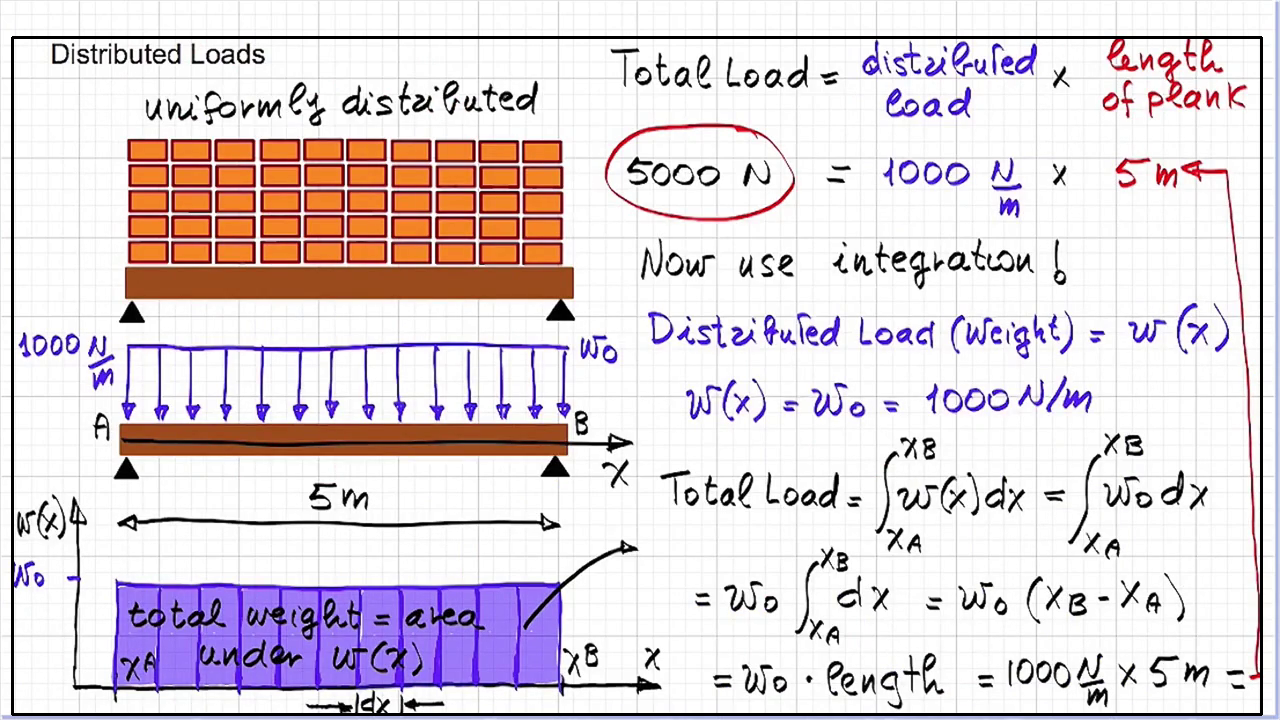 Distributed Loads
uniformly distributed
1000 N/m
w₀
A
B
x
5 m
w(x)
w₀
total weight = area
under w(x)
xA
xB
x
dx
Total Load = distributed load × length of plank
5000 N = 1000 N/m × 5 m
Now use integration!
Distributed Load (Weight) = w(x)
w(x) = w₀ = 1000 N/m
Total Load = ∫_{xA}^{xB} w(x) dx = ∫_{xA}^{xB} w₀ dx
= w₀ ∫_{xA}^{xB} dx = w₀ (xB - xA)
= w₀ · length = 1000 N/m × 5 m =